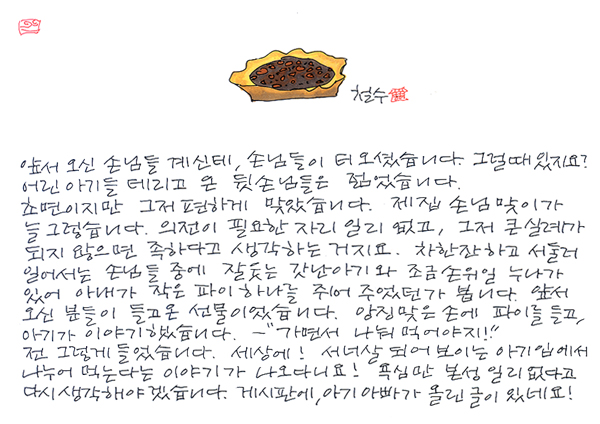 철수
앞서 오신 손님들 계신데, 손님들이 더 오셨습니다. 그럴때 있지요?
어린 아기들 데리고 온 뒷손님들은 젊었습니다.
초면이지만 그저 편하게 맞았습니다. 제 집 손님 맞이가
늘 그렇습니다. 의전이 필요한 자리 일리 없고, 그저 큰 실례가
되지 않으면 족하다고 생각하는 거지요. 차 한잔 하고 서둘러
일어서는 손님들 중에 잘 웃는 갓난아기와 조금 손위일 누나가
있어 아내가 작은 파이 하나를 주어 주었던가 봅니다. 앞서
오신 분들이 들고 온 선물이었습니다. 앙증맞은 손에 파이를 들고,
아기가 이야기 했습니다. ~"가면서 나눠 먹어야지!"
전 그렇게 들었습니다. 세상에! 서너살 되어 보이는 아기 입에서
나누어 먹는다는 이야기가 나오다니요! 욕심만 본성일리 없다고
다시 생각해야 겠습니다. 게시판에, 아기 아빠가 올린 글이 있네요!